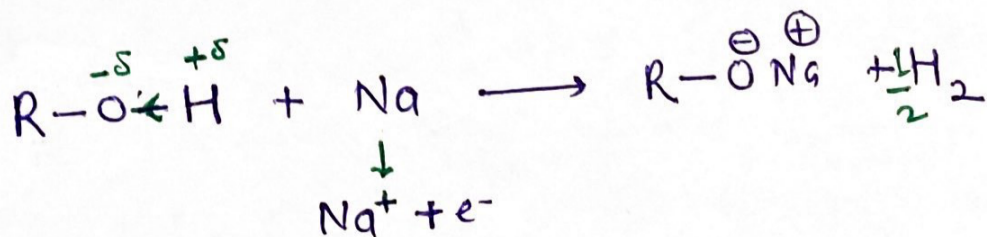 -δ +δ ⊖ ⊕
R-O-H + Na ⟶ R-O Na + 1/2 H2
↓
Na+ + e-